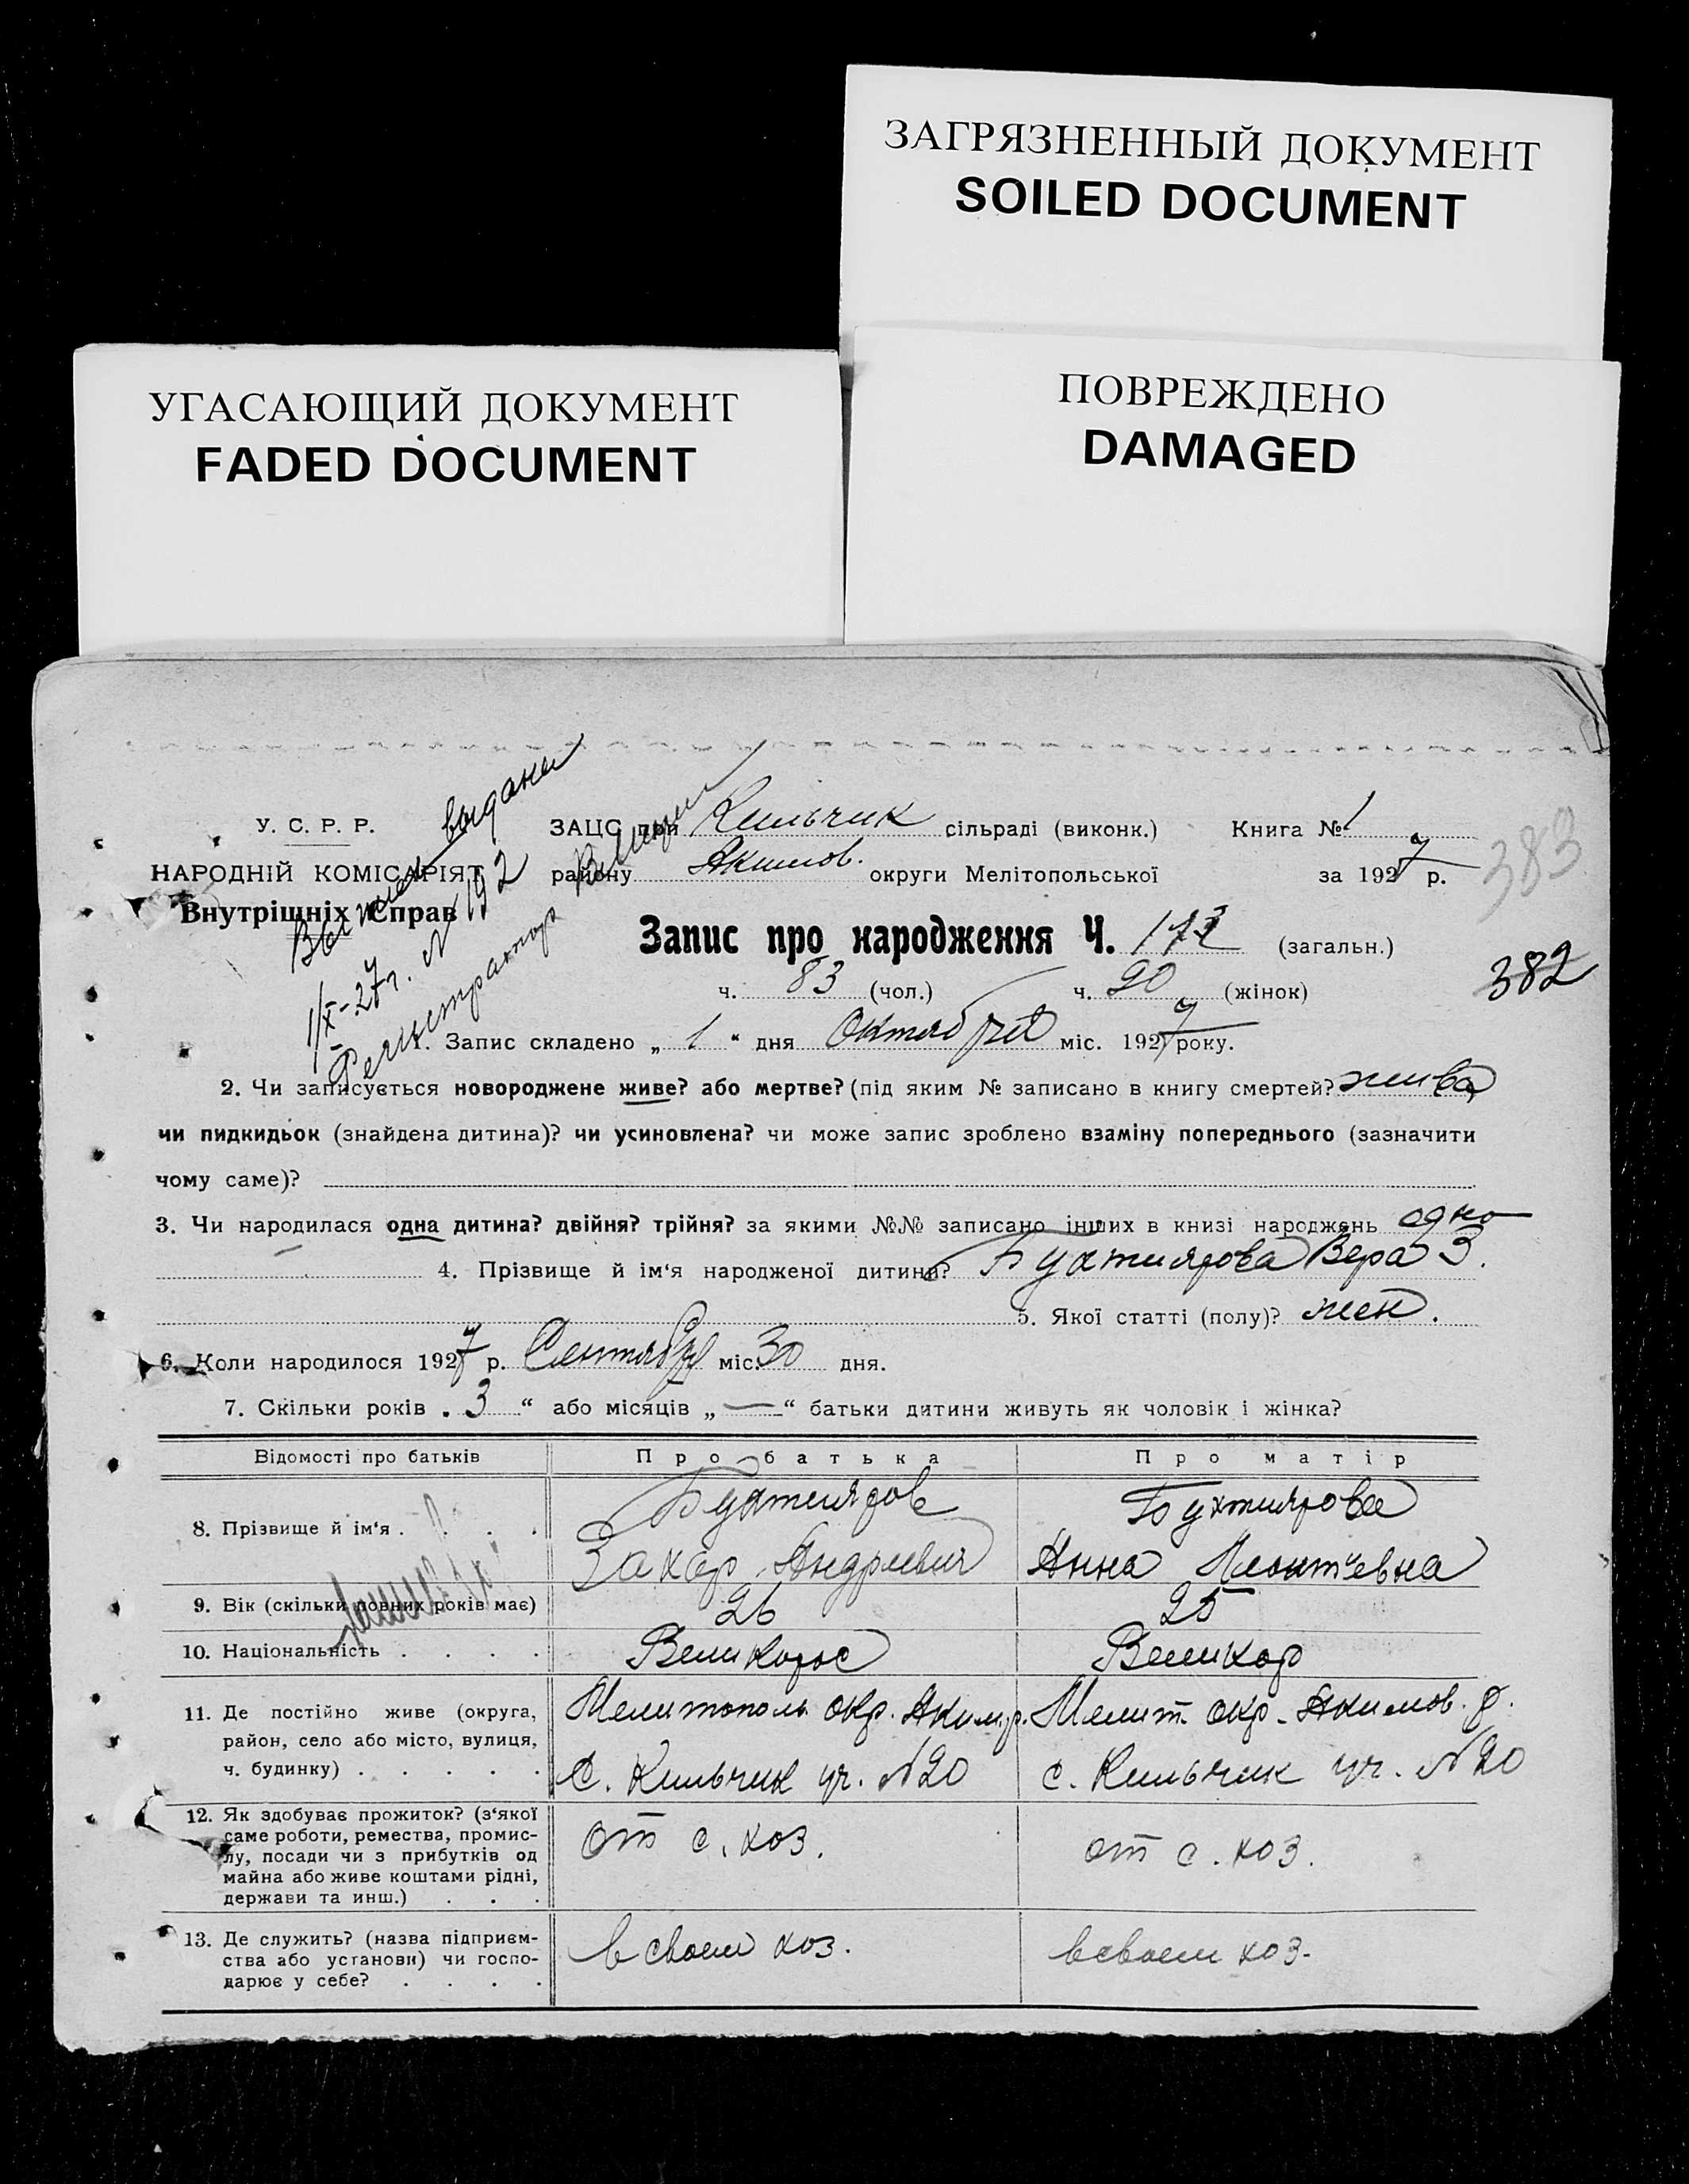 ЗАГРЯЗНЕННЫЙ ДОКУМЕНТ
SOILED DOCUMENT
УГАСАЮЩИЙ ДОКУМЕНТ
FADED DOCUMENT
ПОВРЕЖДЕНО
DAMAGED
У. С. Р. Р.
НАРОДНІЙ КОМІСАРІЯТ
Внутрішніх Справ
выдана
1/X-27г. № 192
Регистратор
ЗАЦС при Кильчик сільраді (виконк.) Книга № 1
району Акимов. округи Мелітопольської за 1927 р.
383
Запис про народження Ч. (загальн.)
382
ч. 83 (чол.) ч. 90 (жінок)
1. Запис складено „ 1 “ дня Октября міс. 1927 року.
2. Чи записується новороджене живе? або мертве? (під яким № записано в книгу смертей? жива
чи пидкидьок (знайдена дитина)? чи усиновлена? чи може запис зроблено взаміну попереднього (зазначити
чому саме)?
3. Чи народилася одна дитина? двійня? трійня? за якими №№ записано інших в книзі народжень одно
4. Прізвище й ім‘я народженої дитини? Бухтиярова Вера З.
5. Якої статті (полу)? жен.
6. Коли народилося 1927 р. Сентября міс. 30 дня.
7. Скільки років „ 3 “ або місяців „ — “ батьки дитини живуть як чоловік і жінка?
Відомості про батьків Про батька Про матір
8. Прізвище й ім‘я . . . . Бухтияров Бухтиярова
Захар Андреевич Анна Леонтьевна
9. Вік (скільки повних років має) 26 25
10. Національність . . . . Великорос Великор
11. Де постійно живе (округа, Мелитополь окр. Аким.р. Мелит. окр. Акимов. р.
район, село або місто, вулиця,
ч. будинку) . . . . . с. Кильчик уч. №20 с. Кильчик уч. №20
12. Як здобуває прожиток? (з‘якої
саме роботи, ремества, промис-
лу, посади чи з прибутків од от с. хоз. от с. хоз.
майна або живе коштами рідні,
держави та инш.) . . .
13. Де служить? (назва підприєм- в своем хоз. в своем хоз.
ства або установи) чи госпо-
дарює у себе? . . . .